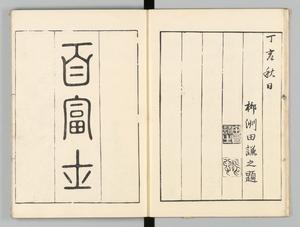 丁亥秋日
柳洲田謙之題
百富士